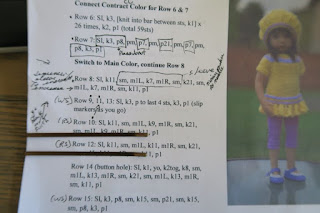 Connect Contract Color for Row 6 & 7
Row 6: Sl, k3, (knit into bar between sts, k1) x
26 times, k2, p1 (total 59sts)
Row 7: Sl, k3, p8, pm, p7, pm, p21, pm, p7, pm,
p8, k3, p1
Switch to Main Color, continue Row 8
Row 8: Sl, k11, sm, m1L, k7, m1R, sm, k21, sm,
m1L, k7, m1R, sm, k11, p1
(WS) Row 9, 11, 13: Sl, k3, p to last 4 sts, k3, p1 (slip
markers as you go)
(RS) Row 10: Sl, k11, sm, m1L, k9, m1R, sm, k21,
sm, m1L, k9, m1R, sm, k11, p1
(RS) Row 12: Sl, k11, sm, m1L, k11, m1R, sm, k21,
sm, m1L, k11, m1R, sm, k11, p1
Row 14 (button hole): Sl, k1, yo, k2tog, k8, sm,
m1L, k13, m1R, sm, k21, sm, m1L, k13, m1R,
sm, k11, p1
(WS) Row 15: Sl, k3, p8, sm, k15, sm, p21, sm, k15,
sm, p8, k3, p1